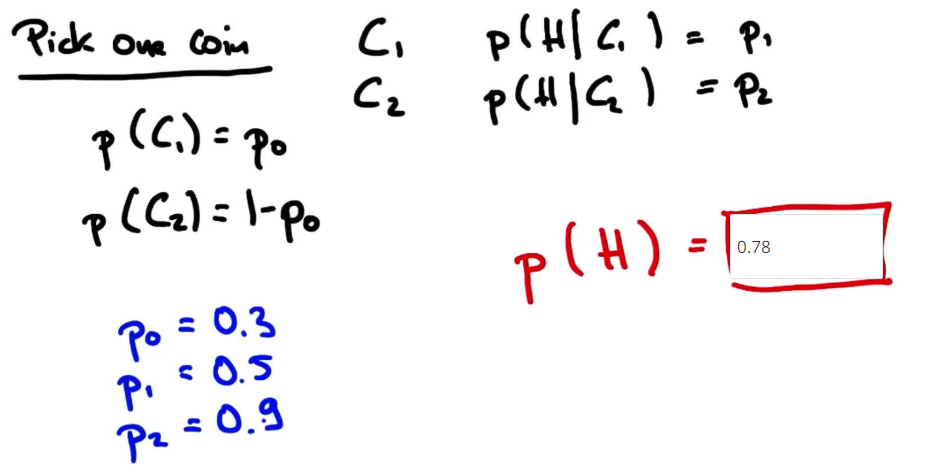 Pick one coin
C₁ p(H|C₁) = p₁
C₂ p(H|C₂) = p₂
p(C₁) = p₀
p(C₂) = 1-p₀
p(H) = 0.78
p₀ = 0.3
p₁ = 0.5
p₂ = 0.9